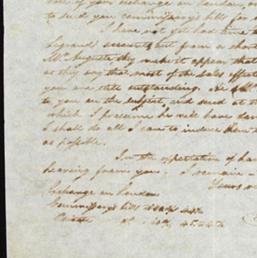 rate of your exchange on London, or
to send you commissary's bills for
I have not yet had time to
Legrand's accounts but from a short
Mr. Auguste they make it appear that
as they say that most of the sales effected
you are still outstanding. He
to you on the subject, and send at the
which I presume he will have
I shall do all I can to induce them
as possible.
In the expectation of
hearing from you. I remain
Yours
Exchange on London
Commissary's bills
Private